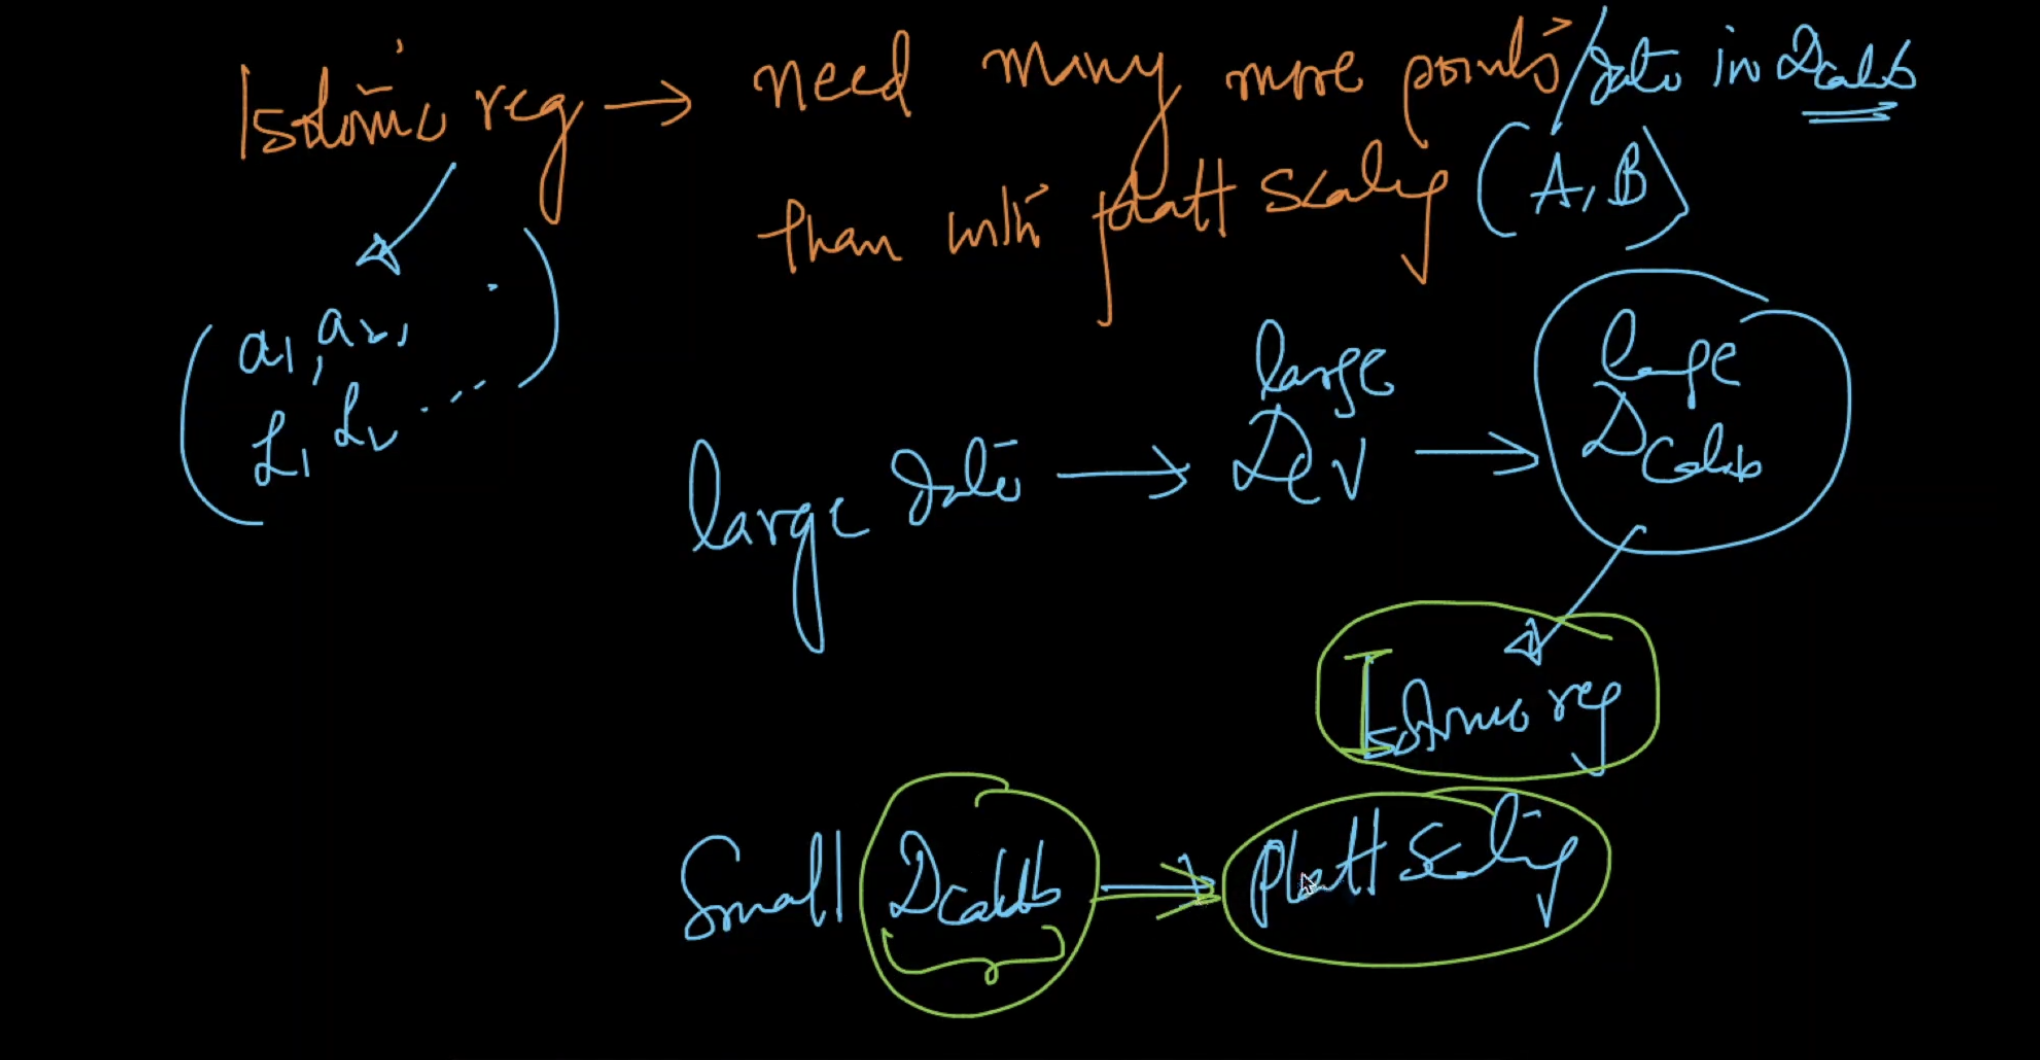 Isotonic reg → need many more points/data in Dcalib
than with platt scaling (A, B)
(a1, a2, .
L1, L2 .....)
large data → large Dcv → large Dcalib
Isotonic reg
Small Dcalib → Platt scaling